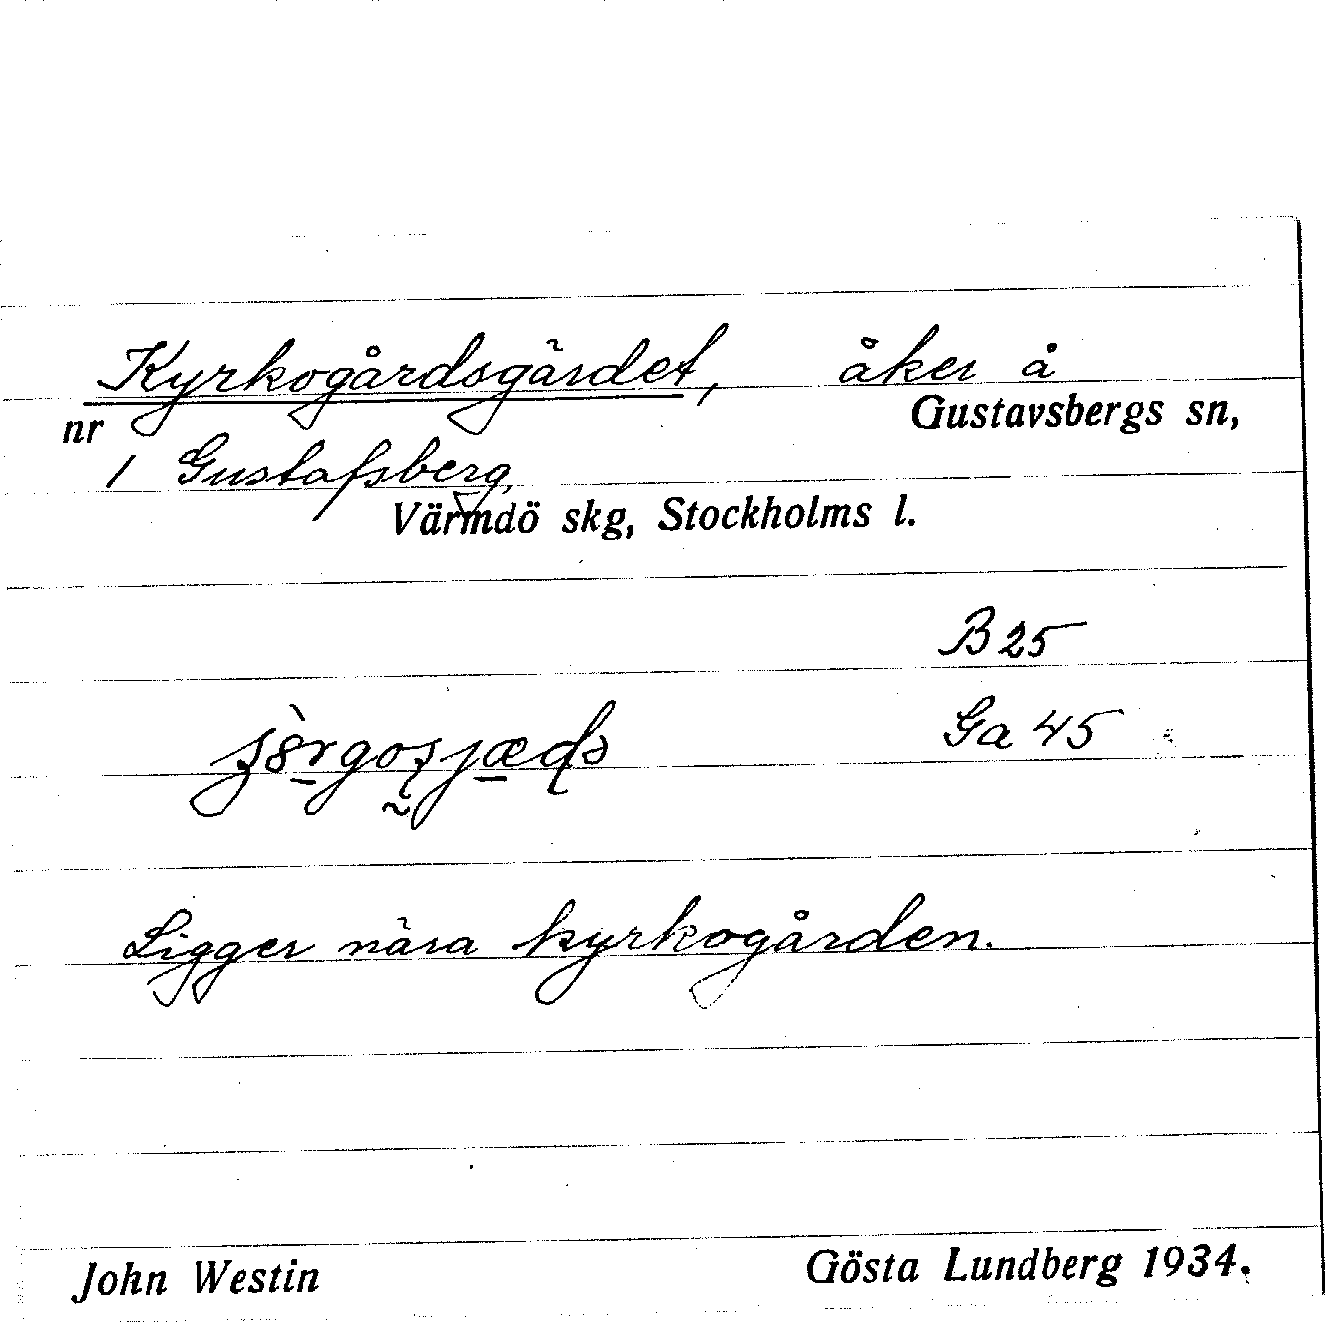 Kyrkogårdsgärdet, åker å
nr Gustavsbergs sn,
1 Gustafsberg,
Värmdö skg, Stockholms l.
B 25
Ga 45
Ligger nära kyrkogården.
John Westin Gösta Lundberg 1934.